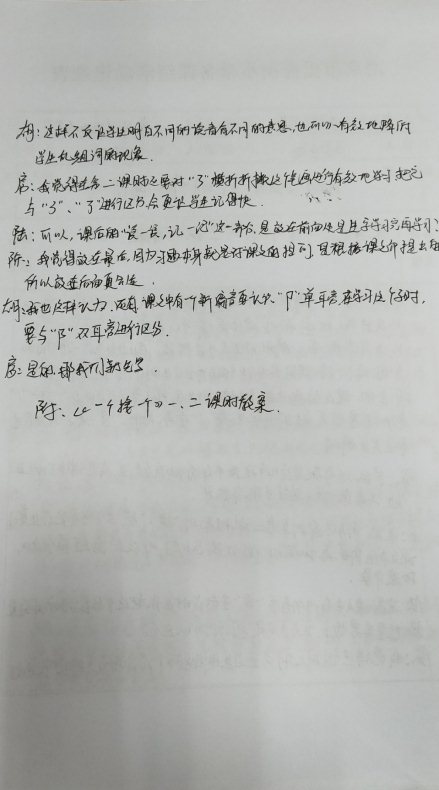 胡：这样不仅让学生明白不同的读音有不同的意思，也可以有效地降低
学生乱组词的现象。
房：我觉得在第二课时还要对“ㄋ”横折折撇这个笔画进行有效地学习，把它
与“ㄋ”、“了”进行区分，会更让学生记得快。
陆：所以，课后的“读一读，记一记”这一部分，是放在前面还是生字学习完再学习？
陈：我觉得放在最后，因为习题本身就是对课文的提问，是根据课文所提出的
所以放在后面更合适。
胡：我也这样认为。还有，课文中有一个新偏旁要认识，“卩”单耳旁，在学习这个字时，
要与“阝”双耳旁进行区分。
房：是的，那我们
附：《一个接一个》一、二课时教案